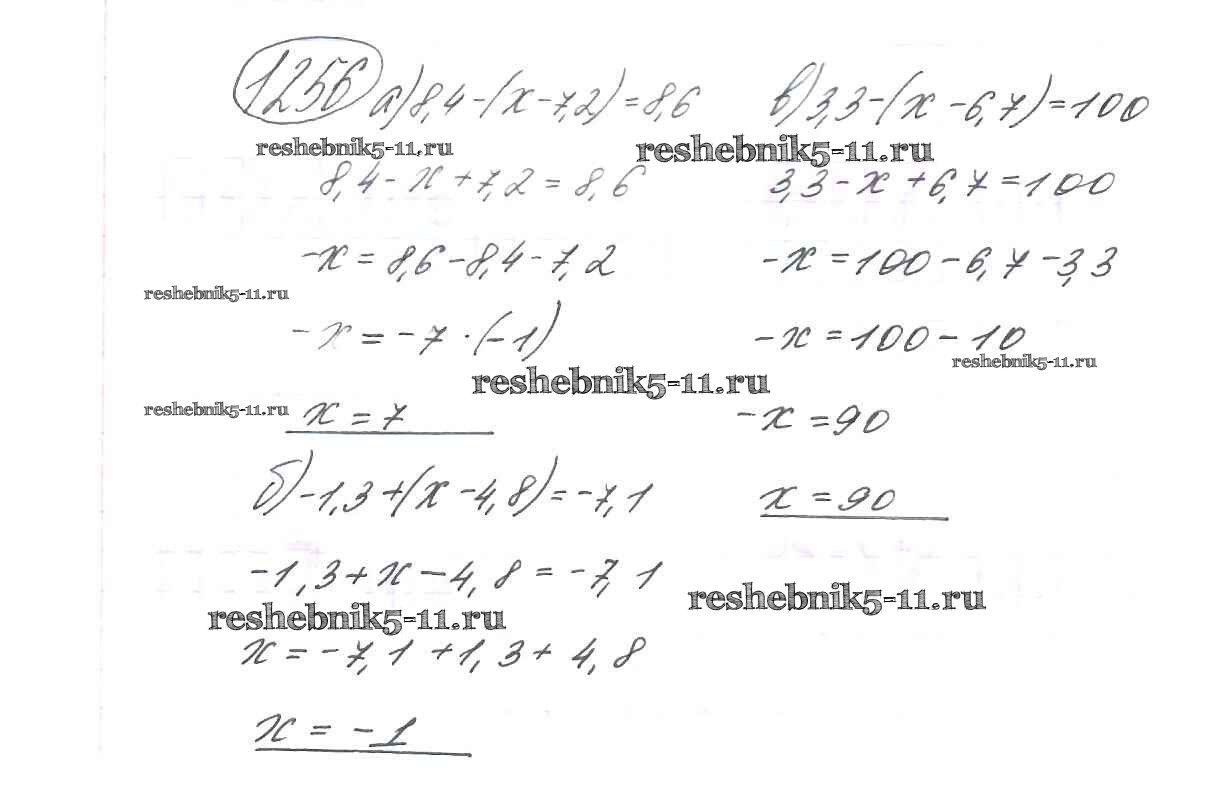 1256 а) 8,4-(x-7,2)=8,6
reshebnik5-11.ru
8,4-x+7,2=8,6
-x=8,6-8,4-7,2
reshebnik5-11.ru
-x=-7·(-1)
reshebnik5-11.ru
reshebnik5-11.ru
x=7
б) -1,3+(x-4,8)=-7,1
-1,3+x-4,8=-7,1
reshebnik5-11.ru
x=-7,1+1,3+4,8
x=-1
в) 3,3-(x-6,7)=100
reshebnik5-11.ru
3,3-x+6,7=100
-x=100-6,7-3,3
-x=100-10
reshebnik5-11.ru
-x=90
x=90
reshebnik5-11.ru